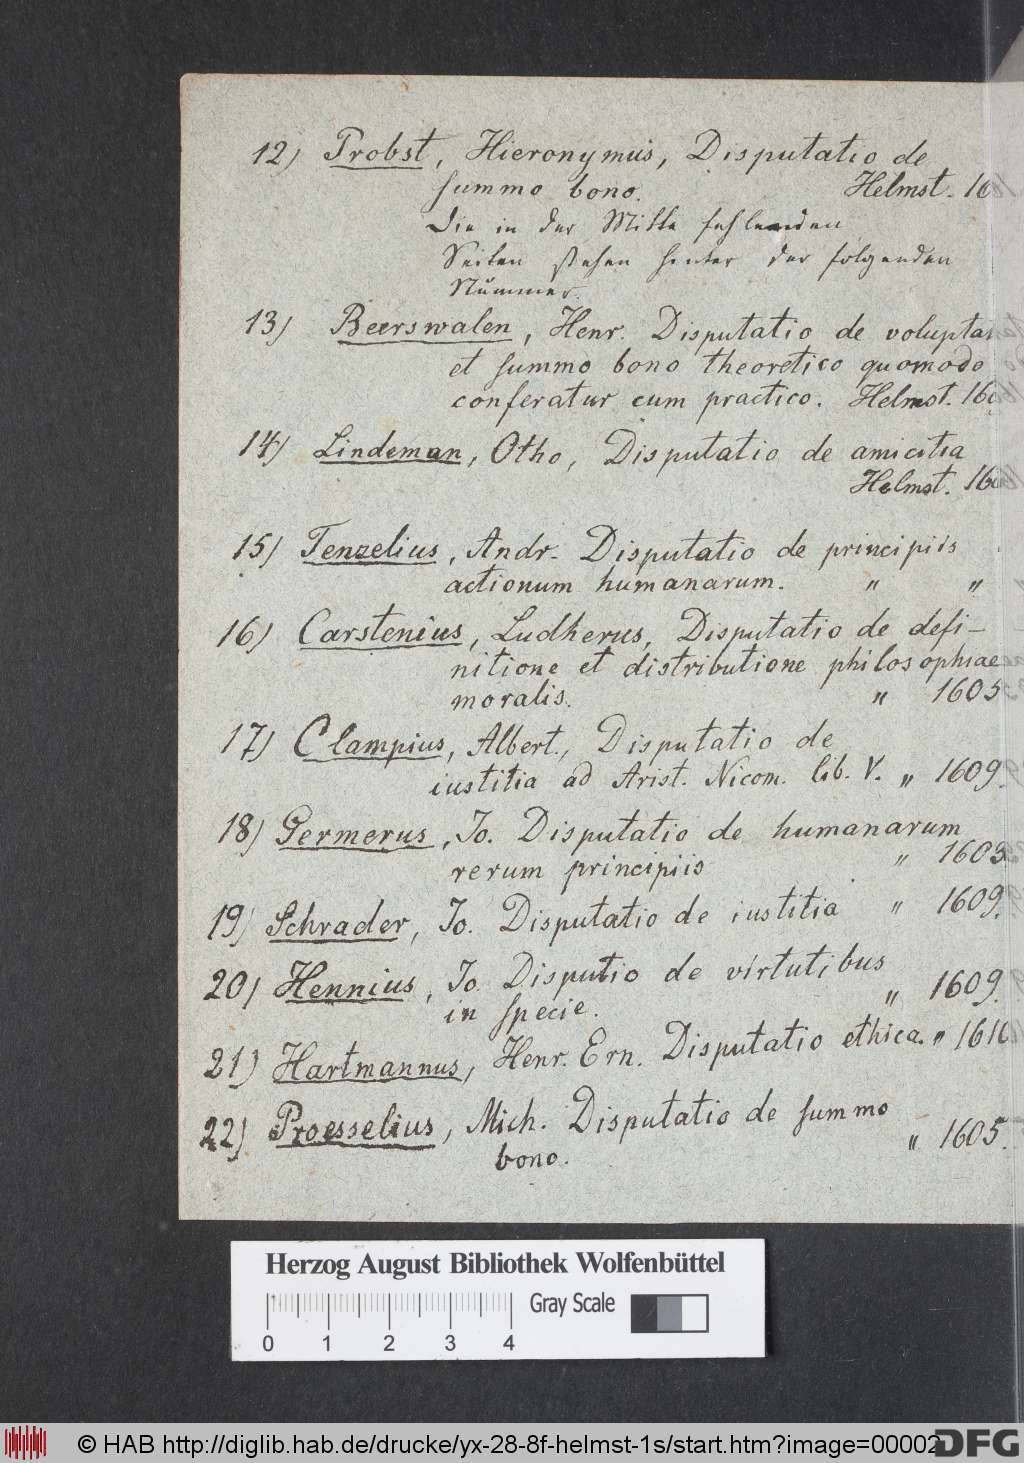 12) Probst, Hieronymus, Disputatio de
summo bono. Helmst. 16
Die in der Mitte fehlenden
Seiten stehen hinter der folgenden
Nummer.
13) Beerswalen, Henr. Disputatio de voluptat
et summo bono theoretico quomodo
conferatur cum practico. Helmst. 160
14) Lindeman, Otho, Disputatio de amicitia
Helmst. 16
15) Tenzelius, Andr. Disputatio de principiis
actionum humanarum. " "
16) Carstenius, Ludherus, Disputatio de defi-
nitione et distributione philosophiae
moralis. " 1605
17) Clampius, Albert., Disputatio de
iustitia ad Arist. Nicom. lib. V. " 1609.
18) Germerus, Jo. Disputatio de humanarum
rerum principiis " 1609
19) Schrader, Jo. Disputatio de iustitia " 1609.
20) Hennius, Jo. Disputio de virtutibus
in specie. " 1609.
21) Hartmannus, Henr. Ern. Disputatio ethica. " 1610
22) Proesselius, Mich. Disputatio de summo
bono. " 1605.
Herzog August Bibliothek Wolfenbüttel
Gray Scale
0 1 2 3 4
© HAB http://diglib.hab.de/drucke/yx-28-8f-helmst-1s/start.htm?image=00002
DFG